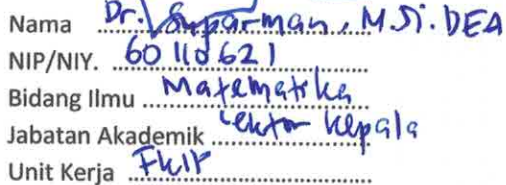 Nama Dr. Suparman, M.Si. DEA
NIP/NIY. 60110621
Bidang Ilmu Matematika
Jabatan Akademik Lektor Kepala
Unit Kerja FKIP